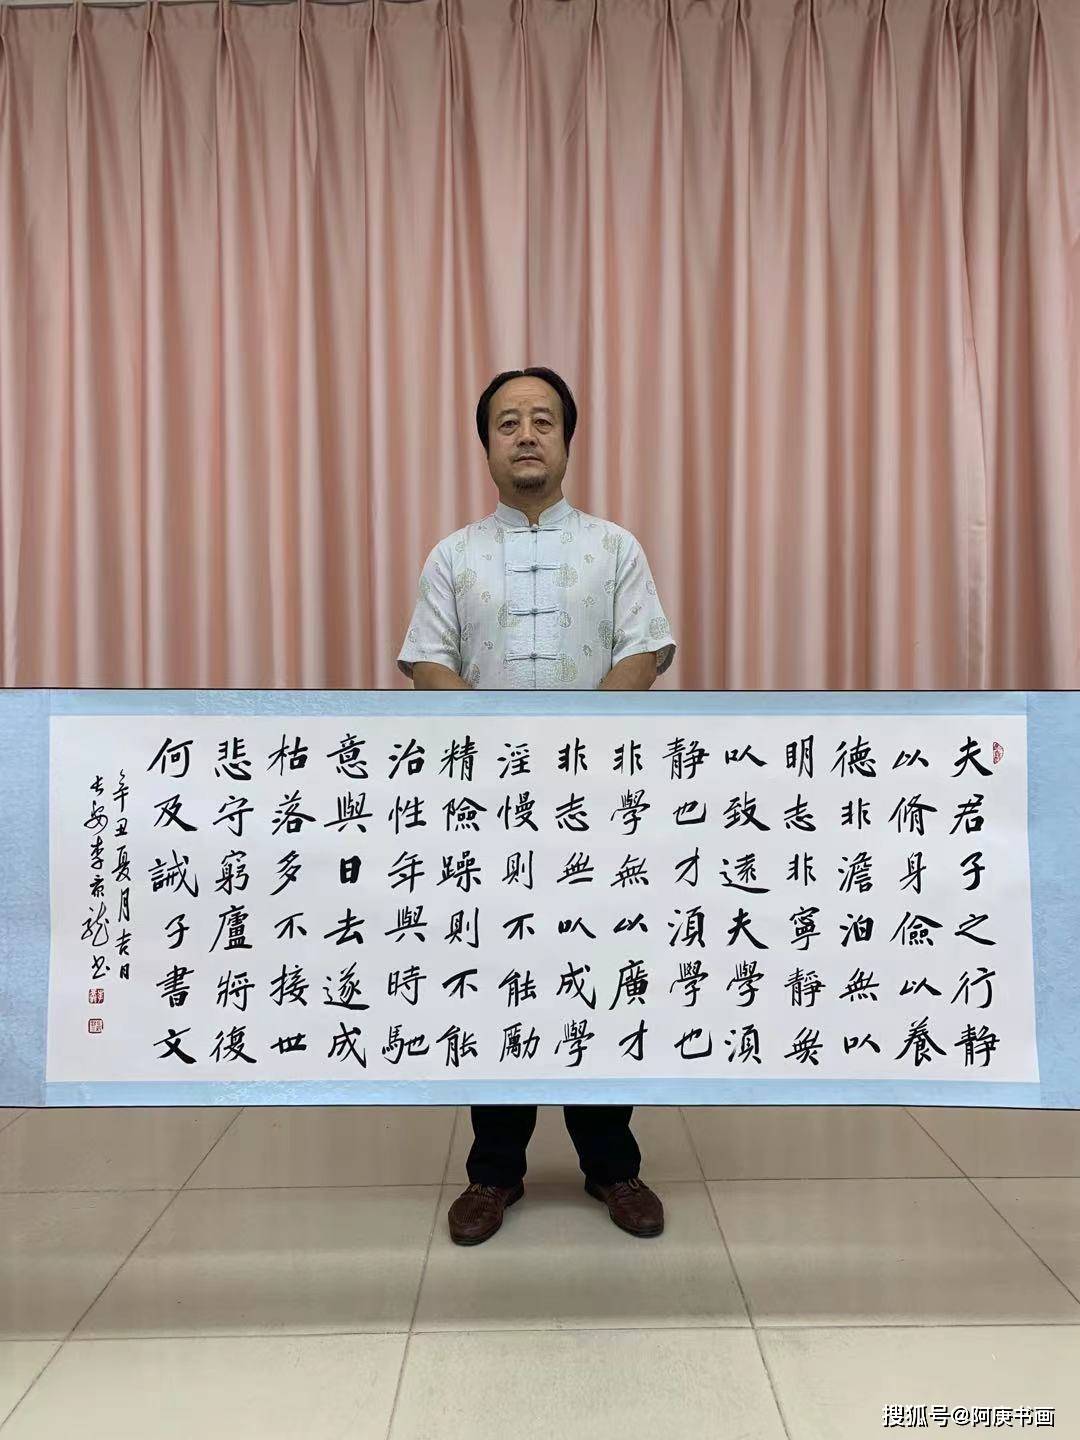 夫君子之行静
以脩身儉以養
德非澹泊無以
明志非寧静無
以致遠夫學湏
静也才湏學也
非學無以廣才
非志無以成學
淫慢則不能勵
精險躁則不能
治性年與時馳
意與日去遂成
枯落多不接世
悲守窮廬將復
何及誡子書文
辛丑夏月吉日
長安李京龍书
搜狐号@阿庚书画